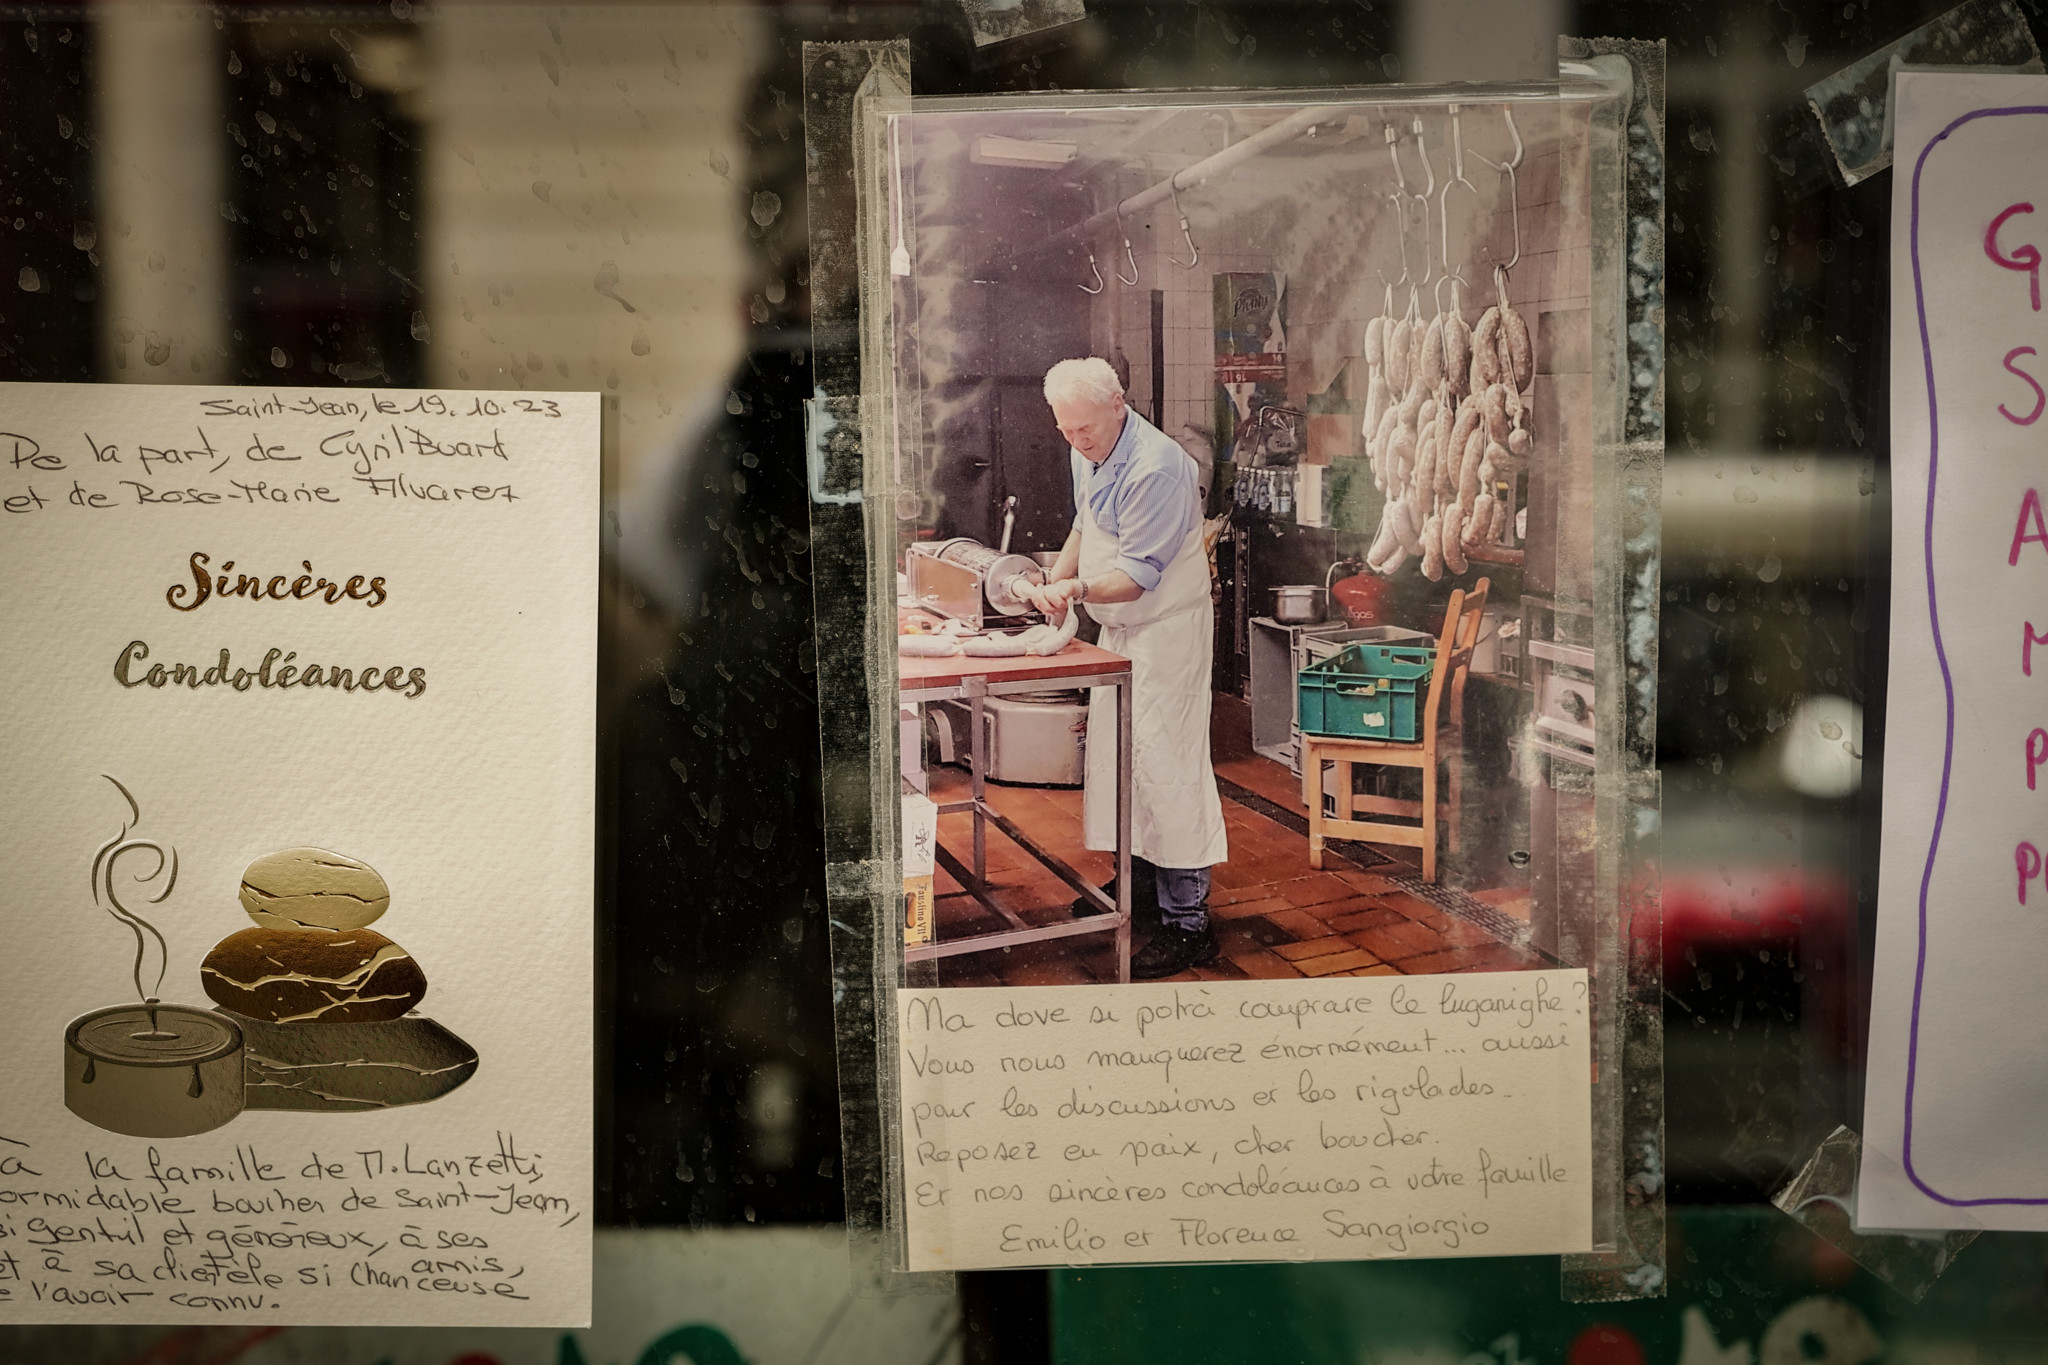 Saint-Jean, le 19.10.23
De la part, de Cyril Buard
et de Rose-Marie Alvarez
Sincères
Condoléances
à la famille de M. Lanzetti,
ormidable boucher de Saint-Jean,
si gentil et généreux, à ses
amis,
et à sa clientèle si chanceuse
e l'avoir connu.
Plenty
Ma dove si potrà comprare le luganighe?
Vous nous manquerez énormément... aussi
pour les discussions et les rigolades...
Reposez en paix, cher boucher.
Et nos sincères condoléances à votre famille
Emilio et Florence Sangiorgio
G
S
A
M
P
P